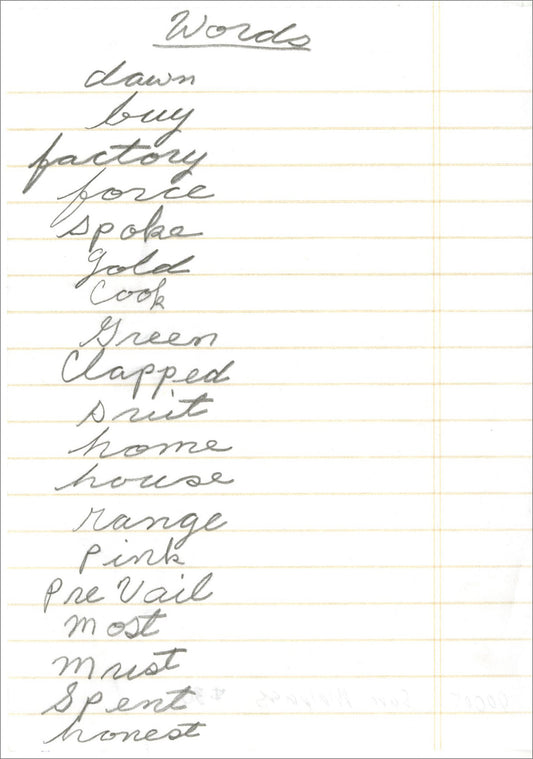 Words
dawn
buy
factory
force
spoke
gold
cook
Green
Clapped
suit
home
house
range
pink
preVail
most
must
Spent
honest